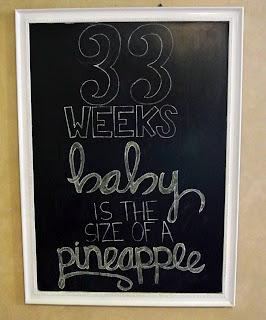 33
WEEKS
baby
IS THE
SIZE OF A
pineapple